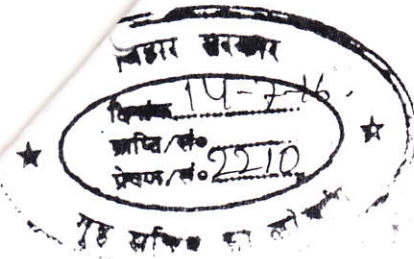 बिहार सरकार
दिनांक 14-7-16.
प्राप्ति/सं०
प्रेषण/सं० 2210
गृह सचिव का